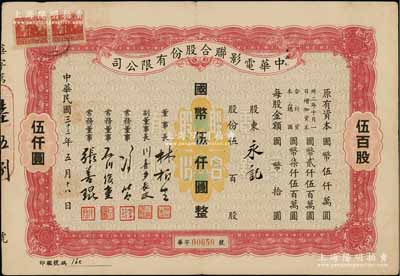 中華電影聯合股份有限公司
伍百股
伍仟圓
原有資本 國幣伍仟萬圓
卅二年十月一日增加資本 國幣貳仟伍百萬圓
合計資本總額 國幣柒仟伍百萬圓
每股金額 國幣拾圓
股東 永記
股份 伍百股
國幣伍仟圓整
董事長 林柏生
副董事長 川喜多長政
常務董事 馮節
常務董事 石川俊重
常務董事 張善琨
中華民國三十三年五月十六日
華字 00650 號
上海陽明拍賣